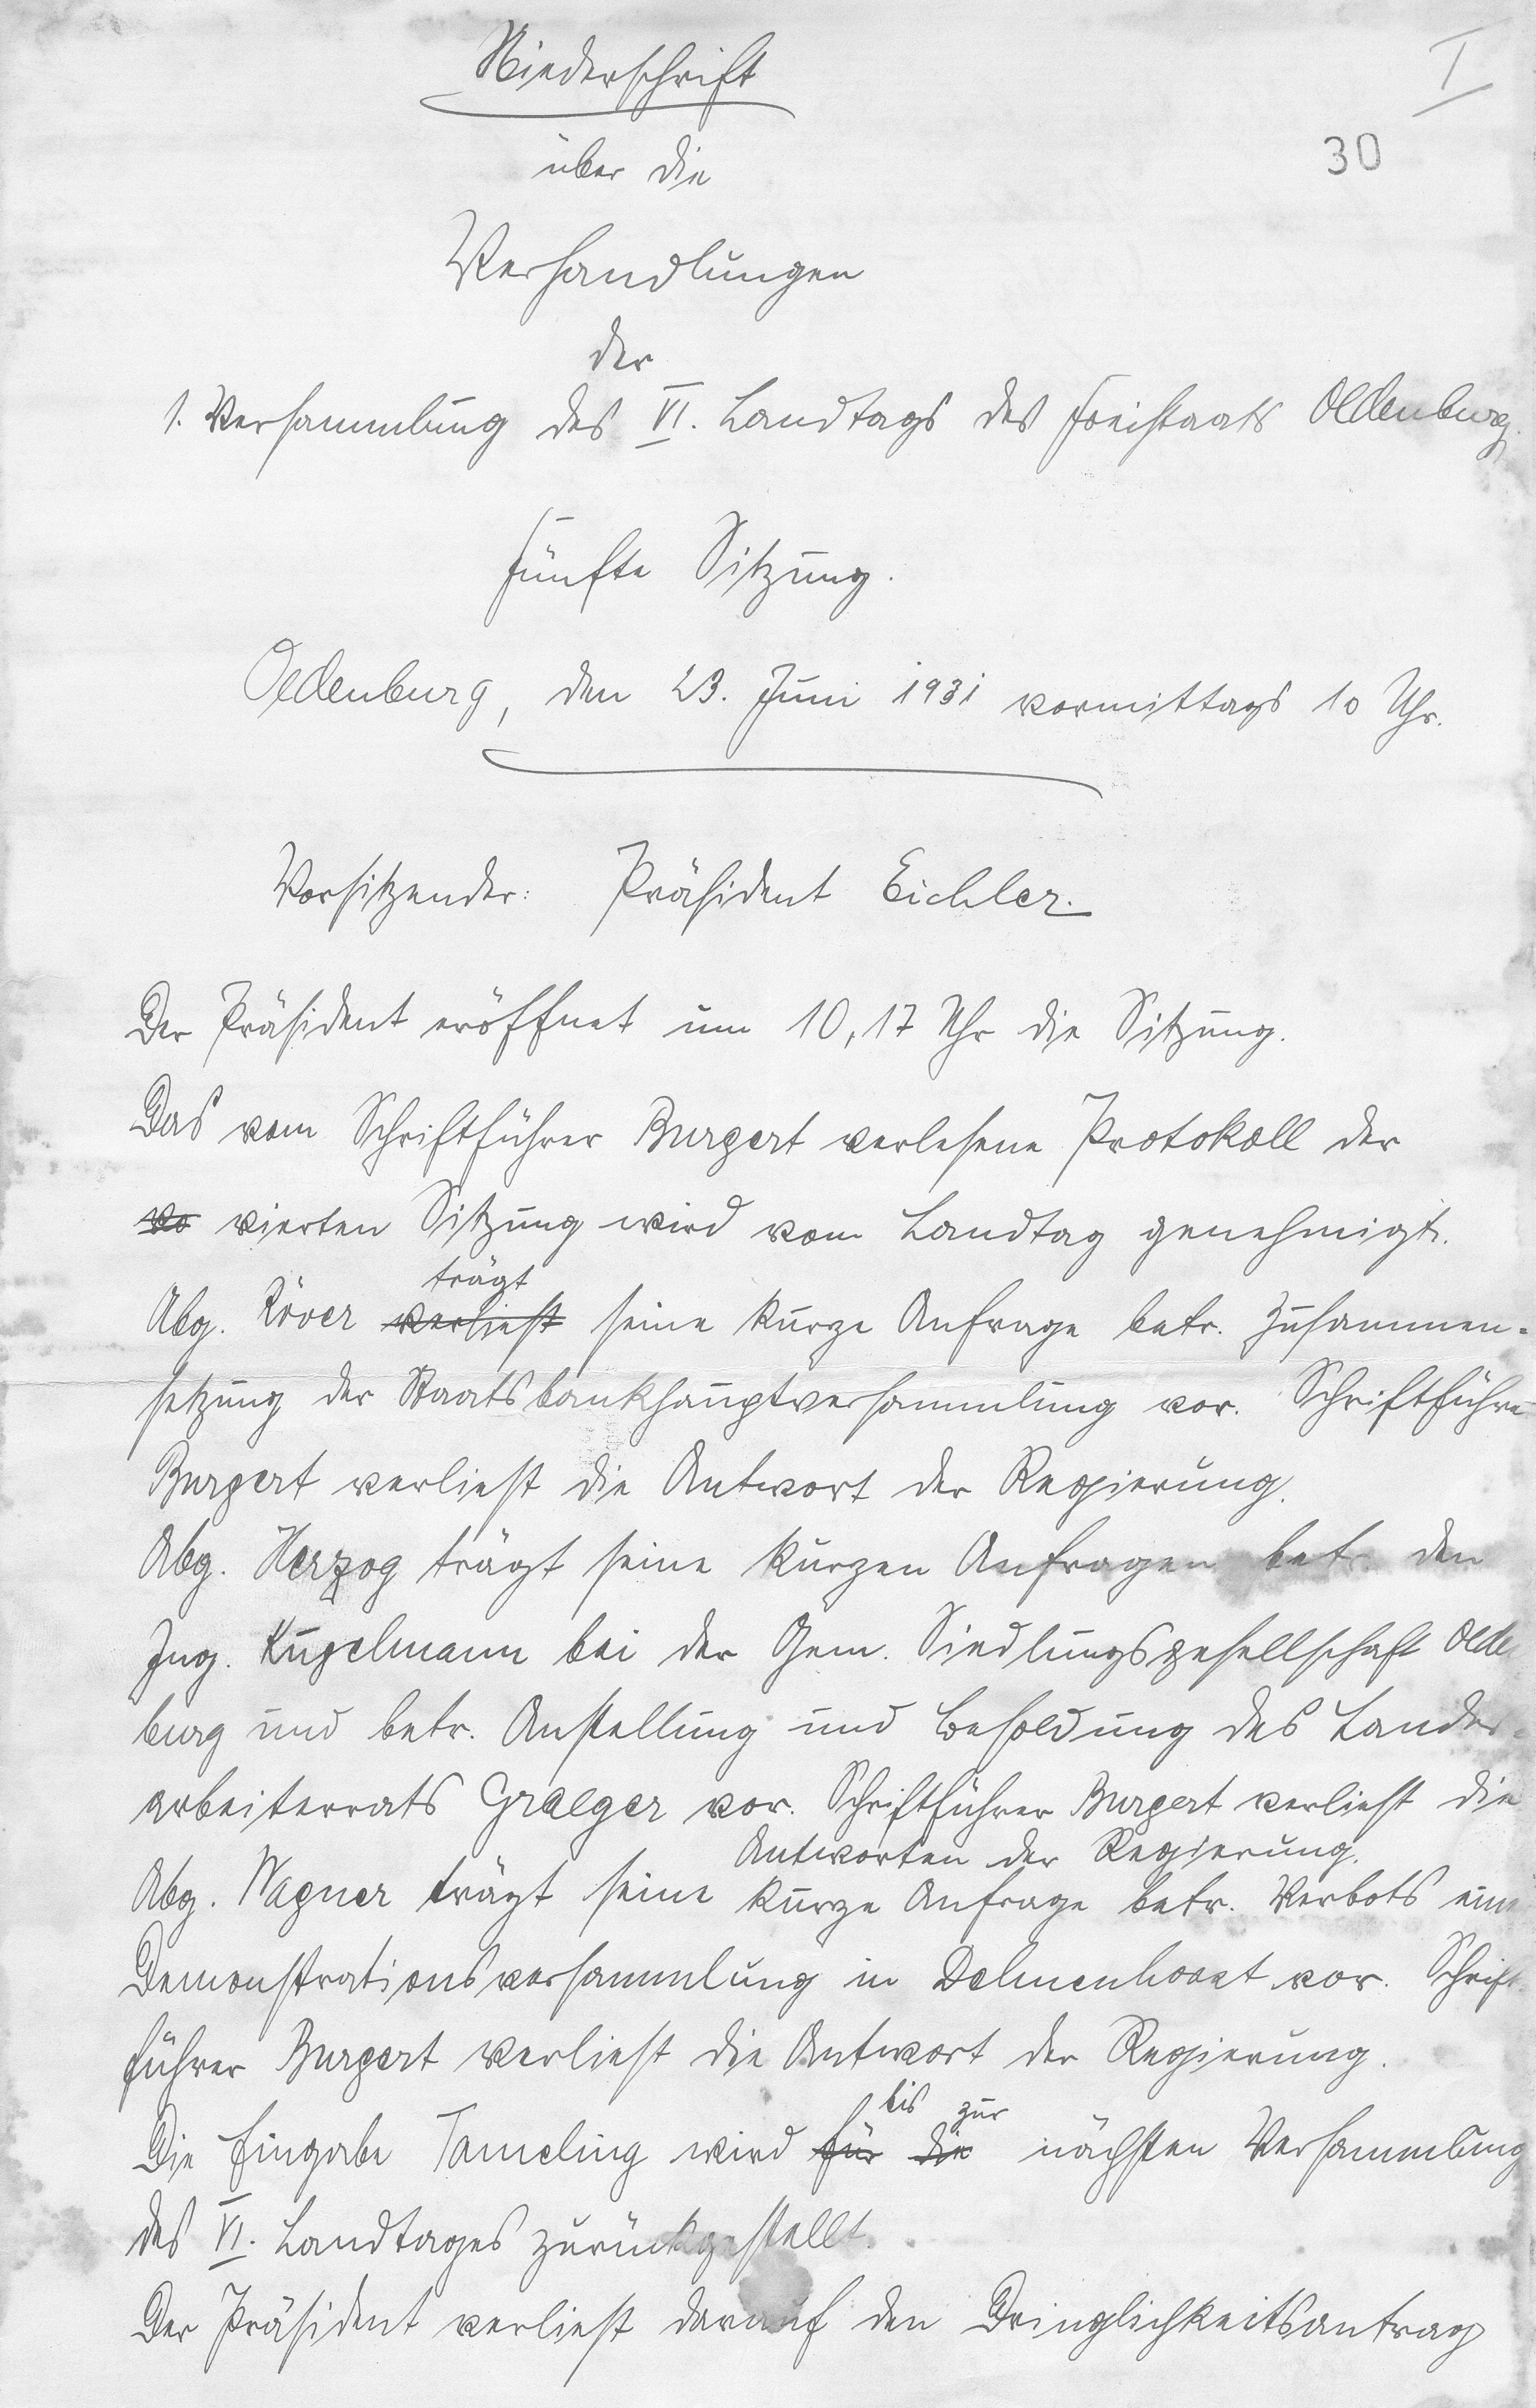 I
Niederschrift
30
über die
Verhandlungen
der
1. Versammlung des VI. Landtags des Freistaats Oldenburg.
Fünfte Sitzung.
Oldenburg, den 23. Juni 1931 vormittags 10 Uhr.
Vorsitzender: Präsident Eichler.
Der Präsident eröffnet um 10,17 Uhr die Sitzung.
Das vom Schriftführer Burgert verlesene Protokoll der
vo vierten Sitzung wird vom Landtag genehmigt.
trägt
Abg. Röver verliest seine kurze Anfrage betr. Zusammen-
setzung der Staatsbankhauptversammlung vor. Schriftführer
Burgert verliest die Antwort der Regierung.
Abg. Herzog trägt seine kurzen Anfragen betr. den
Ing. Kugelmann bei der Gem. Siedlungsgesellschaft Olden
burg und betr. Anstellung und Besoldung des Landes-
arbeiterrats Graeger vor. Schriftführer Burgert verliest die
Antworten der Regierung.
Abg. Wagner trägt seine kurze Anfrage betr. Verbots einer
Demonstrationsversammlung in Delmenhorst vor. Schrift-
führer Burgert verliest die Antwort der Regierung.
bis zur
Die Eingabe Tameling wird für die nächsten Versammlung
des VI. Landtages zurückgestellt.
Der Präsident verliest darauf den Dringlichkeitsantrag